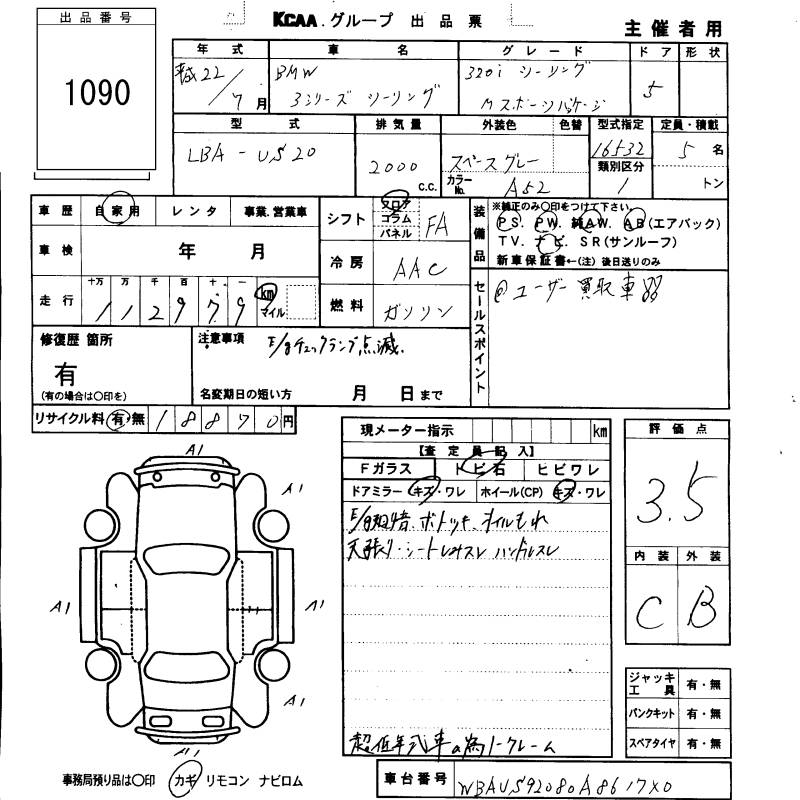 出品番号
1090
KCAA.グループ 出品票
主催者用
年式 車名 グレード ドア 形状
平成22/7月 BMW 3シリーズ ツーリング 320i ツーリング Mスポーツパッケージ 5
型式 排気量 外装色 色替 型式指定 定員・積載
LBA-US20 2000 c.c. スペースグレー 16532 5名
カラーNo. A52 類別区分 1 トン
車歴 自家用 レンタ 事業.営業車
シフト フロア コラム パネル FA
装備品 ※純正のみ〇印をつけて下さい
PS. PW. 純AW. AB(エアバック)
TV. ナビ. SR(サンルーフ)
新車保証書←(注) 後日送りのみ
車検 年 月
冷房 AAC
走行 十万 万 千 百 十 一
112979 km マイル
燃料 ガソリン
セールスポイント
@ユーザー買取車
修復歴 箇所
有
(有の場合は〇印を)
注意事項 E/gチェックランプ点滅.
名変期日の短い方 月 日まで
リサイクル料 有・無 18870円
現メーター指示 km
【査定員記入】
Fガラス トビ石 ヒビワレ
ドアミラー キズ・ワレ ホイール(CP) キズ・ワレ
天張り・シート ハンドルスレ
超低年式車の為ノークレーム
評価点
3.5
内装 外装
C B
A1
A1
A1
A1
A1
A1
A1
A1
ジャッキ工具 有・無
パンクキット 有・無
スペアタイヤ 有・無
事務局預り品は〇印 カギ リモコン ナビロム
車台番号 WBAUS92080A8617X0